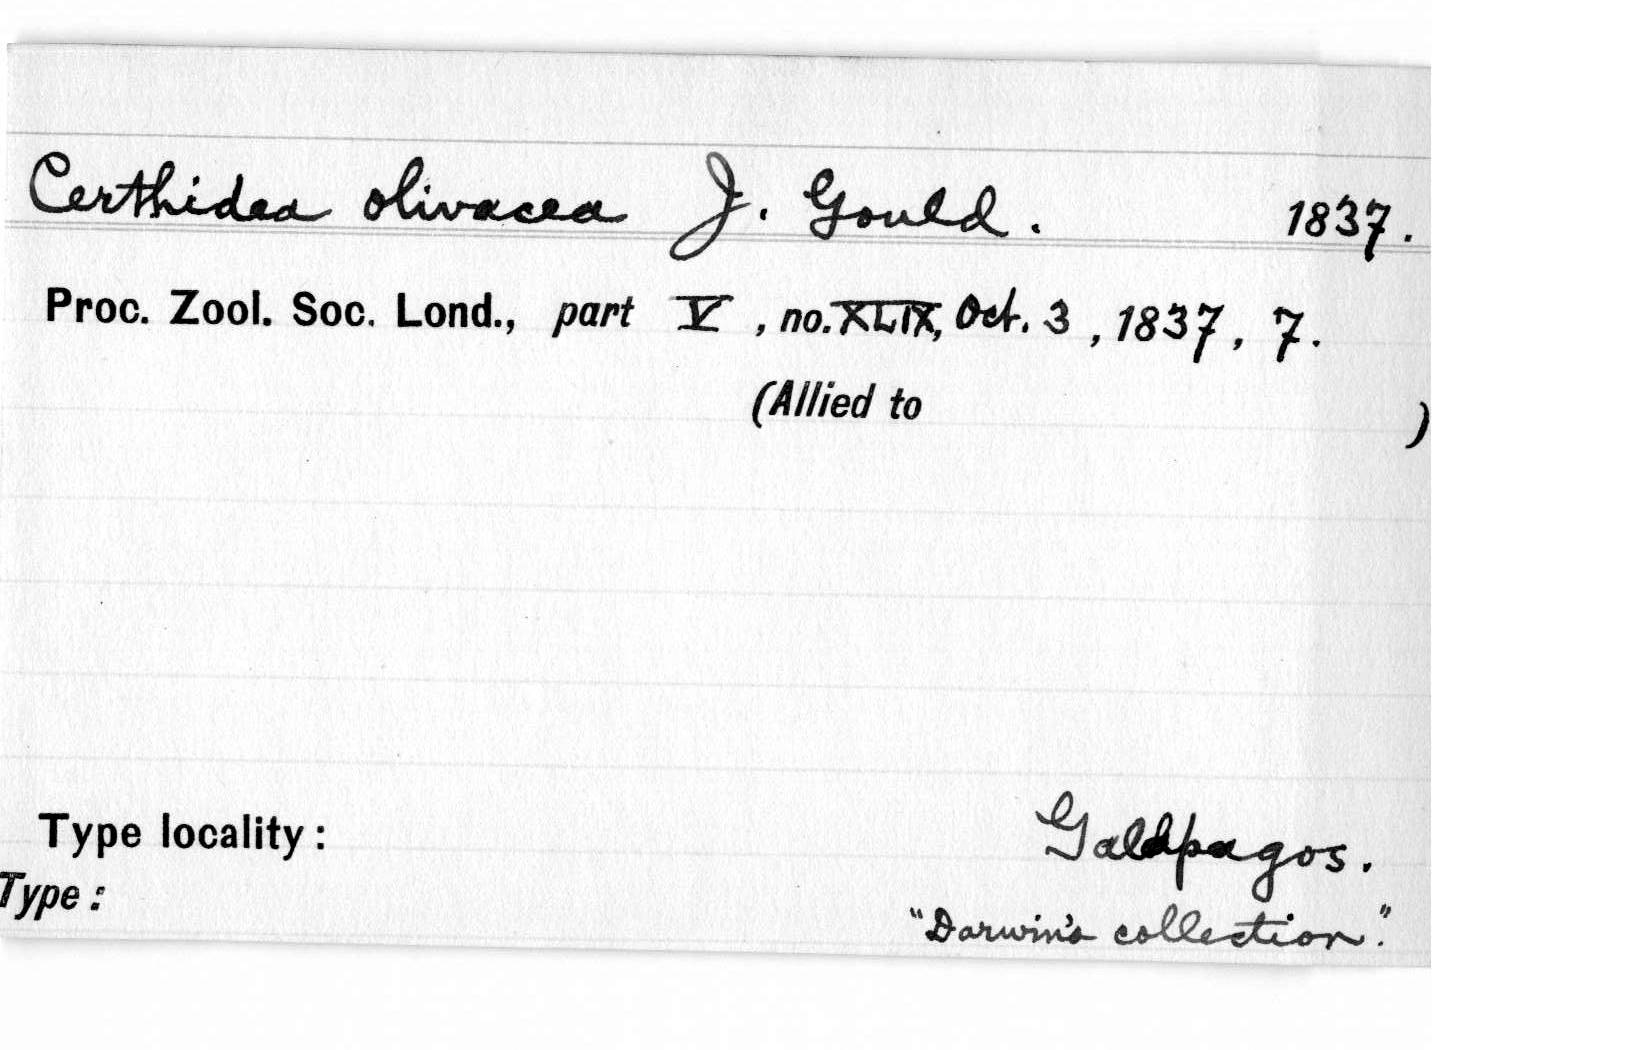 Certhidea olivacea J. Gould. 1837.
Proc. Zool. Soc. Lond., part V, no. XLIX, Oct. 3, 1837, 7.
(Allied to )
Type locality: Galápagos.
Type: "Darwin's collection."